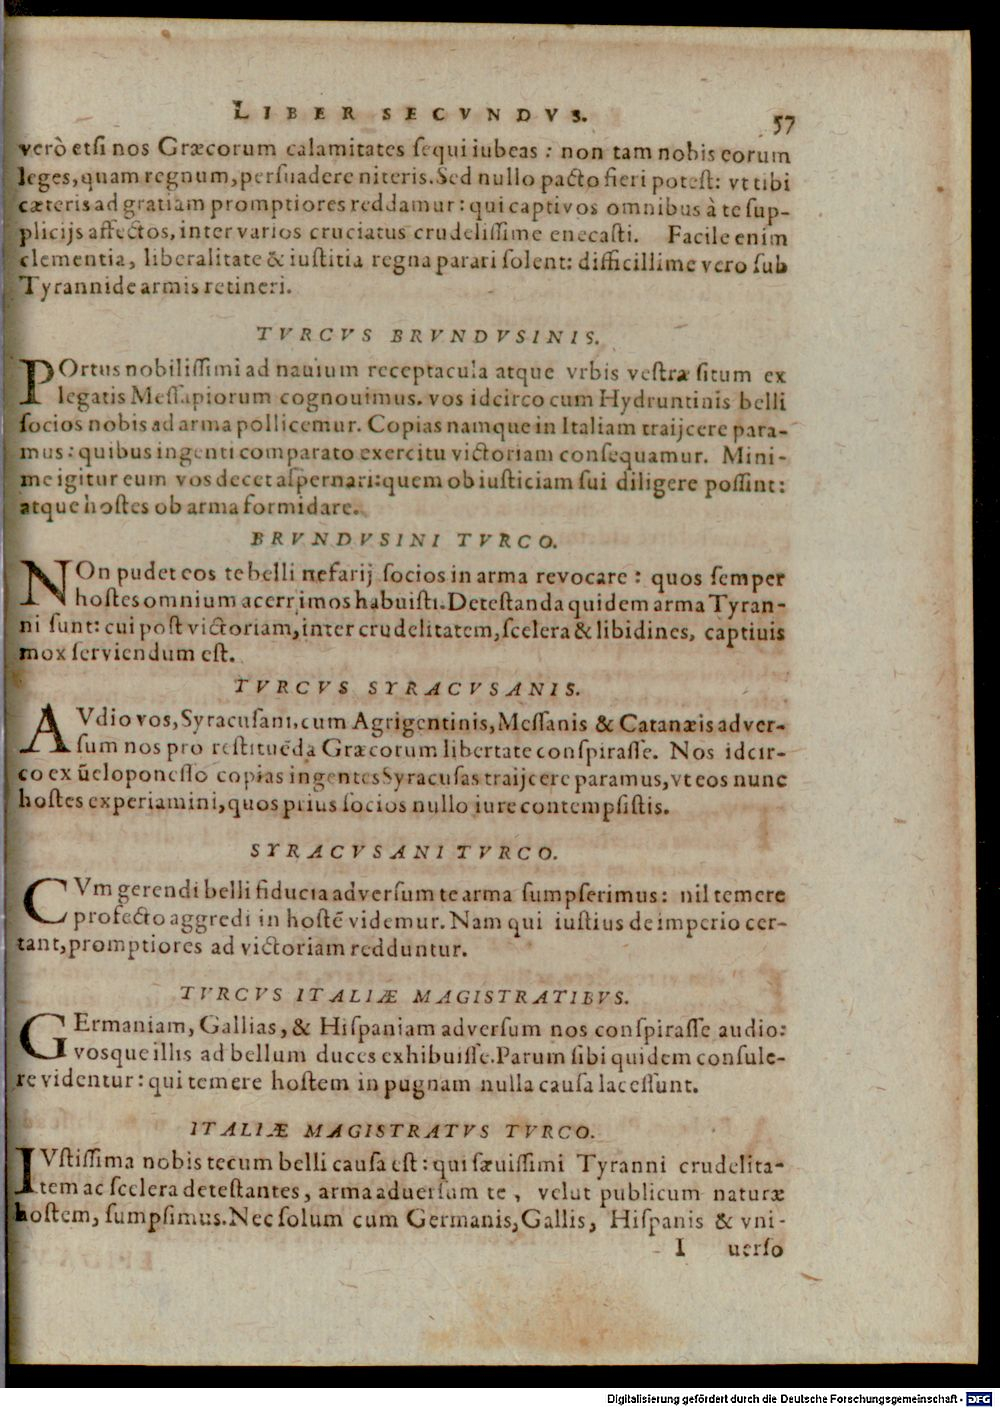 LIBER SECVNDVS.
57
verò etſi nos Græcorum calamitates ſequi iubeas: non tam nobis eorum
leges, quam regnum, perſuadere niteris. Sed nullo pacto fieri poteſt: vt tibi
cæteris ad gratiam promptiores reddamur: qui captivos omnibus à te ſup-
plicijs affectos, inter varios cruciatus crudeliſſime enecaſti. Facile enim
clementia, liberalitate & iuſtitia regna parari ſolent: difficillime vero ſub
Tyrannide armis retineri.
TVRCVS BRVNDVSINIS.
POrtus nobiliſſimi ad nauium receptacula atque vrbis veſtræ ſitum ex
legatis Meſſapiorum cognouimus. vos idcirco cum Hydruntinis belli
ſocios nobis ad arma pollicemur. Copias namque in Italiam traijcere para-
mus: quibus ingenti comparato exercitu victoriam conſequamur. Mini-
me igitur eum vos decet aſpernari: quem ob iuſticiam ſui diligere poſſint:
atque hoſtes ob arma formidare.
BRVNDVSINI TVRCO.
NOn pudet eos te belli nefarij ſocios in arma revocare: quos ſemper
hoſtes omnium acerrimos habuiſti. Deteſtanda quidem arma Tyran-
ni ſunt: cui poſt victoriam, inter crudelitatem, ſcelera & libidines, captiuis
mox ſerviendum eſt.
TVRCVS SYRACVSANIS.
AVdio vos, Syracuſani, cum Agrigentinis, Meſſanis & Catanæis adver-
ſum nos pro reſtituẽda Græcorum libertate conſpiraſſe. Nos idcir-
co ex ũeloponeſſo copias ingentes Syracuſas traijcere paramus, vt eos nunc
hoſtes experiamini, quos prius ſocios nullo iure contempſiſtis.
SYRACVSANI TVRCO.
CVm gerendi belli fiducia adverſum te arma ſumpſerimus: nil temere
profecto aggredi in hoſtẽ videmur. Nam qui iuſtius de imperio cer-
tant, promptiores ad victoriam redduntur.
TVRCVS ITALIÆ MAGISTRATIBVS.
GErmaniam, Gallias, & Hiſpaniam adverſum nos conſpiraſſe audio:
vosque illis ad bellum duces exhibuiſſe. Parum ſibi quidem conſule-
re videntur: qui temere hoſtem in pugnam nulla cauſa laceſſunt.
ITALIÆ MAGISTRATVS TVRCO.
IVſtiſſima nobis tecum belli cauſa eſt: qui ſæuiſſimi Tyranni crudelita-
tem ac ſcelera deteſtantes, arma aduerſum te, velut publicum naturæ
hoſtem, ſumpſimus. Nec ſolum cum Germanis, Gallis, Hiſpanis & vni-
I uerſo
Digitalisierung gefördert durch die Deutsche Forschungsgemeinschaft - DFG